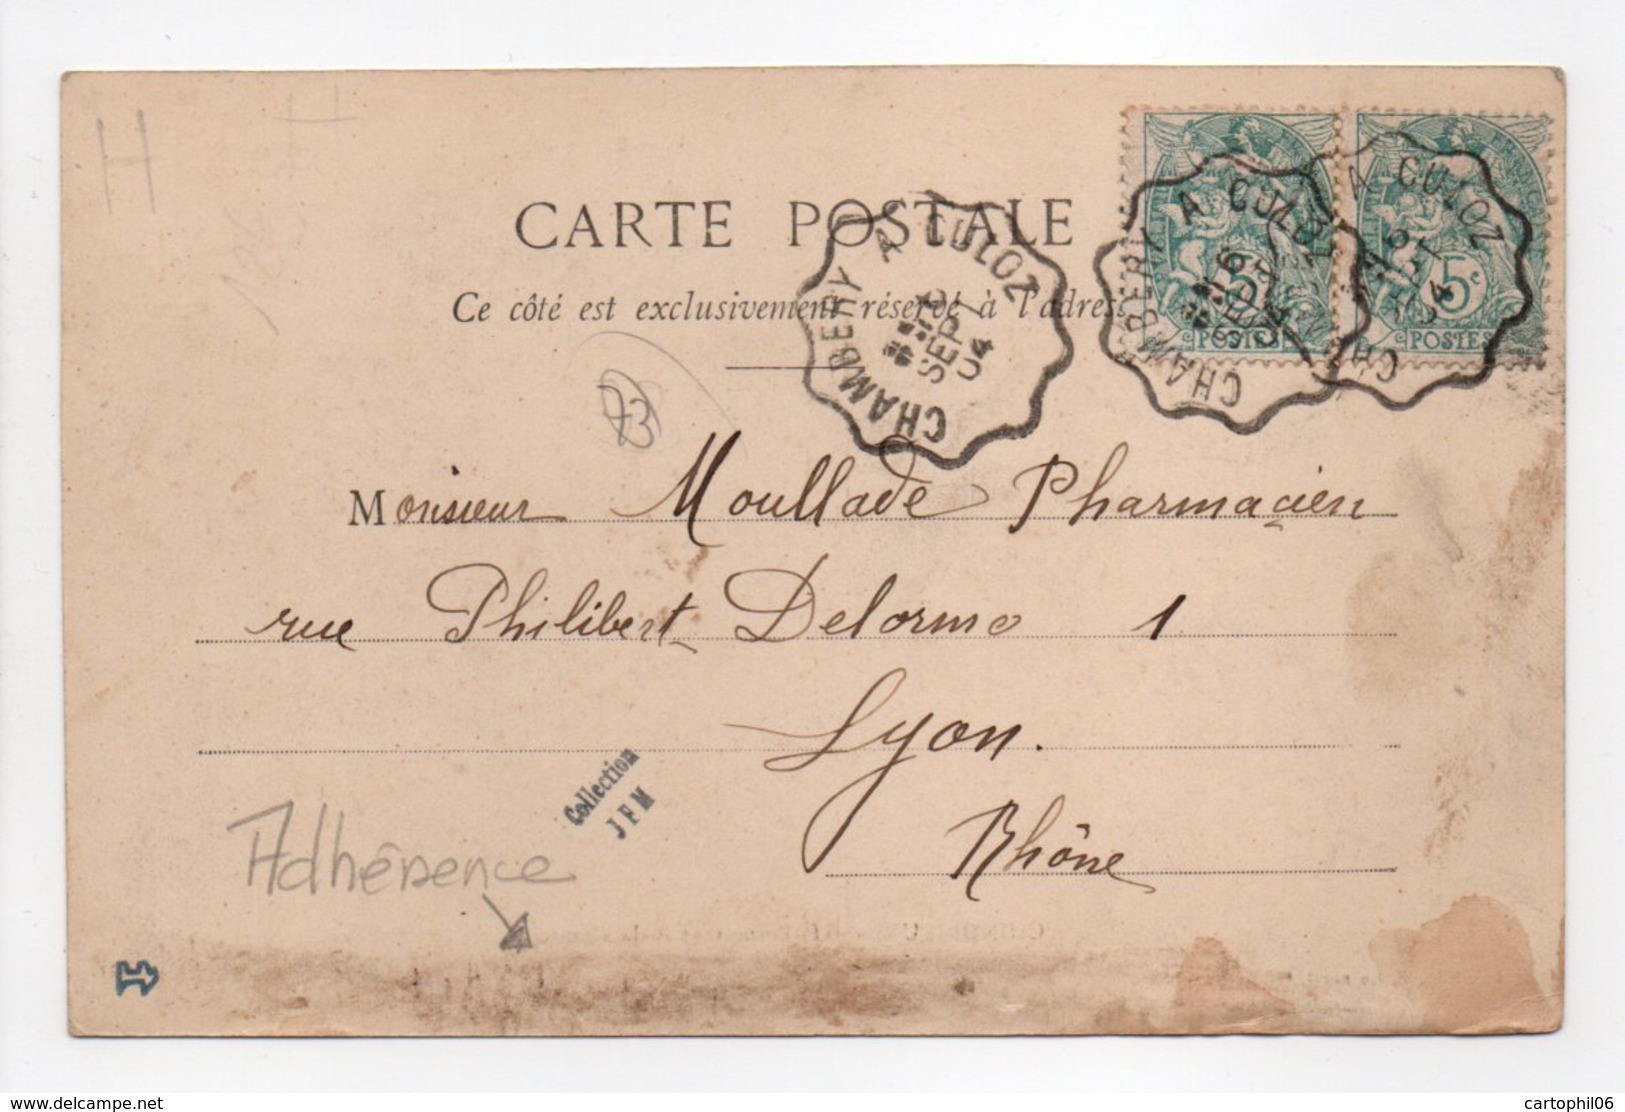 H
CARTE POSTALE
Ce côté est exclusivement réservé à l'adresse
CHAMBERY A CULOZ
SEPT
04
CHAMBERY A CULOZ
A CULOZ
5
POSTES
5c
POSTES
73
Monsieur Moullade Pharmacien
rue Philibert Delorme 1
Lyon.
Rhône
Collection
JFM
Adhérence
www.delcampe.net
cartophil06